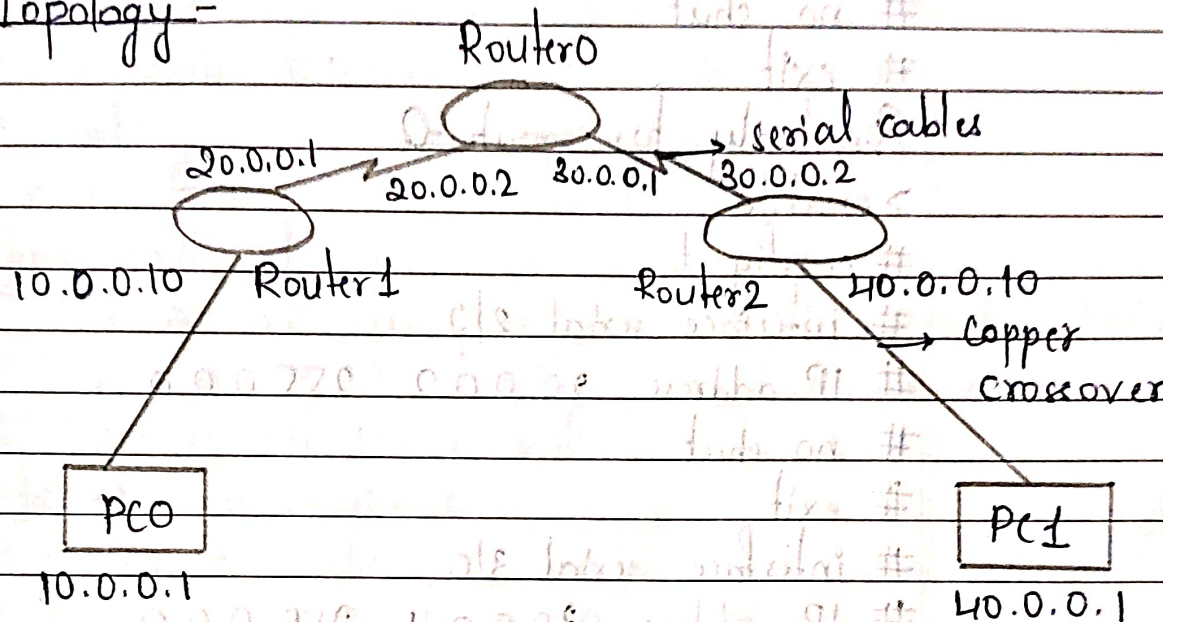 Topology -
Router0
serial cables
20.0.0.1
20.0.0.2
30.0.0.1
30.0.0.2
10.0.0.10
Router1
Router2
40.0.0.10
Copper
crossover
PC0
PC1
10.0.0.1
40.0.0.1